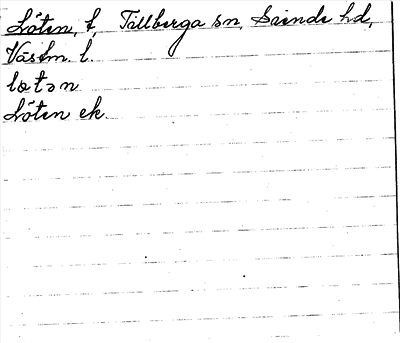 Löten, t, Tillberga sn, Siende hd,
Västm. l.
lötən
Löten ek.